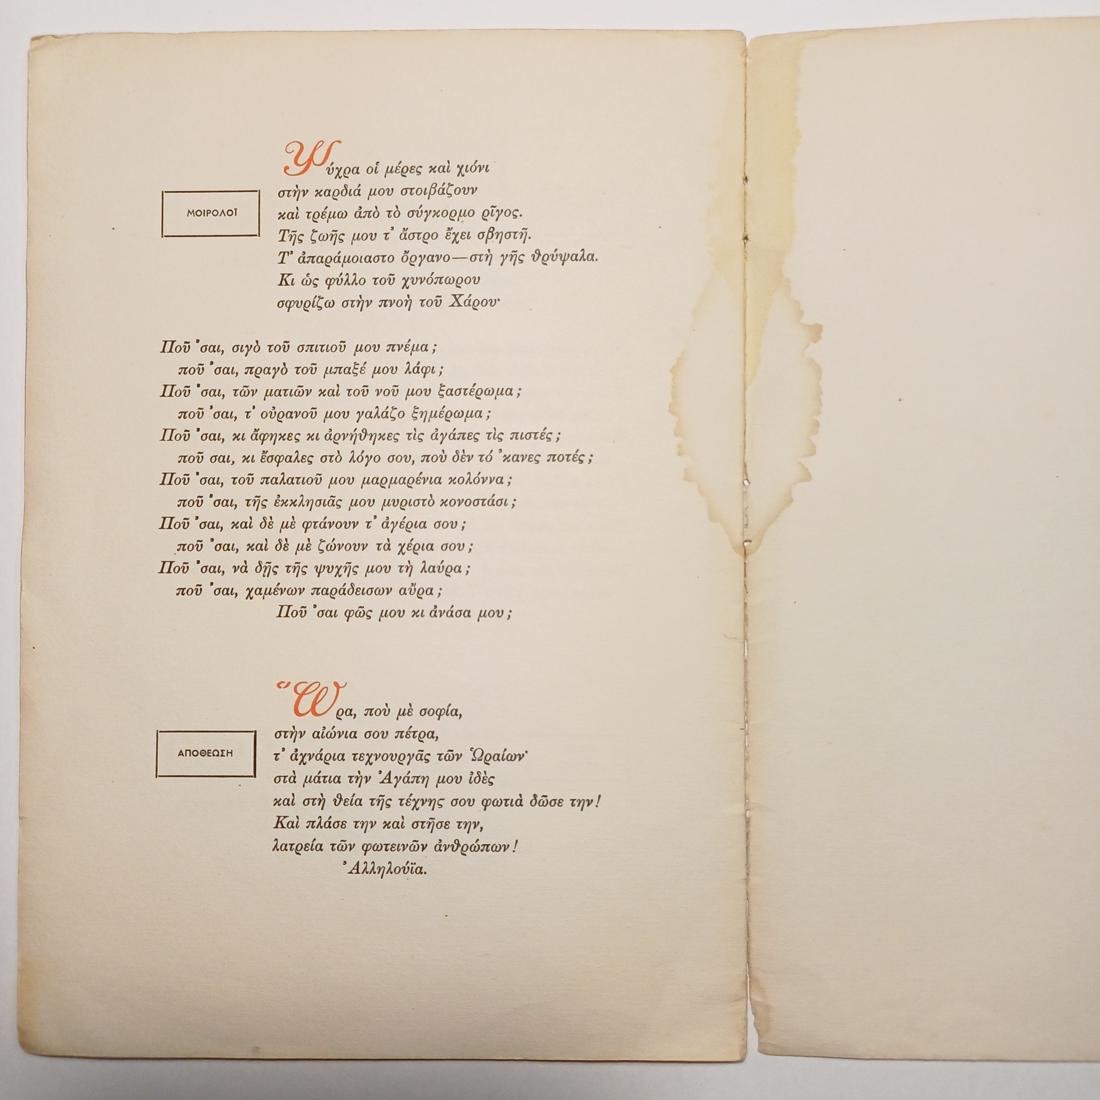 ΜΟΙΡΟΛΟΪ
Ψύχρα οἱ μέρες καὶ χιόνι
στὴν καρδιά μου στοιβάζουν
καὶ τρέμω ἀπὸ τὸ σύγκορμο ρῖγος.
Τῆς ζωῆς μου τ' ἄστρο ἔχει σβηστῆ.
Τ' ἀπαράμοιαστο ὄργανο—στὴ γῆς θρύψαλα.
Κι ὡς φύλλο τοῦ χυνόπωρου
σφυρίζω στὴν πνοὴ τοῦ Χάρου·
Ποῦ 'σαι, σιγὸ τοῦ σπιτιοῦ μου πνέμα;
ποῦ 'σαι, πραγὸ τοῦ μπαξέ μου λάφι;
Ποῦ 'σαι, τῶν ματιῶν καὶ τοῦ νοῦ μου ξαστέρωμα;
ποῦ 'σαι, τ' οὐρανοῦ μου γαλάζο ξημέρωμα;
Ποῦ 'σαι, κι ἄφηκες κι ἀρνήθηκες τὶς ἀγάπες τὶς πιστές;
ποῦ σαι, κι ἔσφαλες στὸ λόγο σου, ποὺ δὲν τό 'κανες ποτές;
Ποῦ 'σαι, τοῦ παλατιοῦ μου μαρμαρένια κολόννα;
ποῦ 'σαι, τῆς ἐκκλησιᾶς μου μυριστὸ κονοστάσι;
Ποῦ 'σαι, καὶ δὲ μὲ φτάνουν τ' ἀγέρια σου;
ποῦ 'σαι, καὶ δὲ μὲ ζώνουν τὰ χέρια σου;
Ποῦ 'σαι, νὰ δῇς τῆς ψυχῆς μου τὴ λαύρα;
ποῦ 'σαι, χαμένων παράδεισων αὔρα;
Ποῦ 'σαι φῶς μου κι ἀνάσα μου;
ΑΠΟΘΕΩΣΗ
Ὥρα, ποὺ μὲ σοφία,
στὴν αἰώνια σου πέτρα,
τ' ἀχνάρια τεχνουργᾶς τῶν Ὡραίων·
στὰ μάτια τὴν Ἀγάπη μου ἰδὲς
καὶ στὴ θεία τῆς τέχνης σου φωτιὰ δῶσε την!
Καὶ πλάσε την καὶ στῆσε την,
λατρεία τῶν φωτεινῶν ἀνθρώπων!
Ἀλληλούϊα.